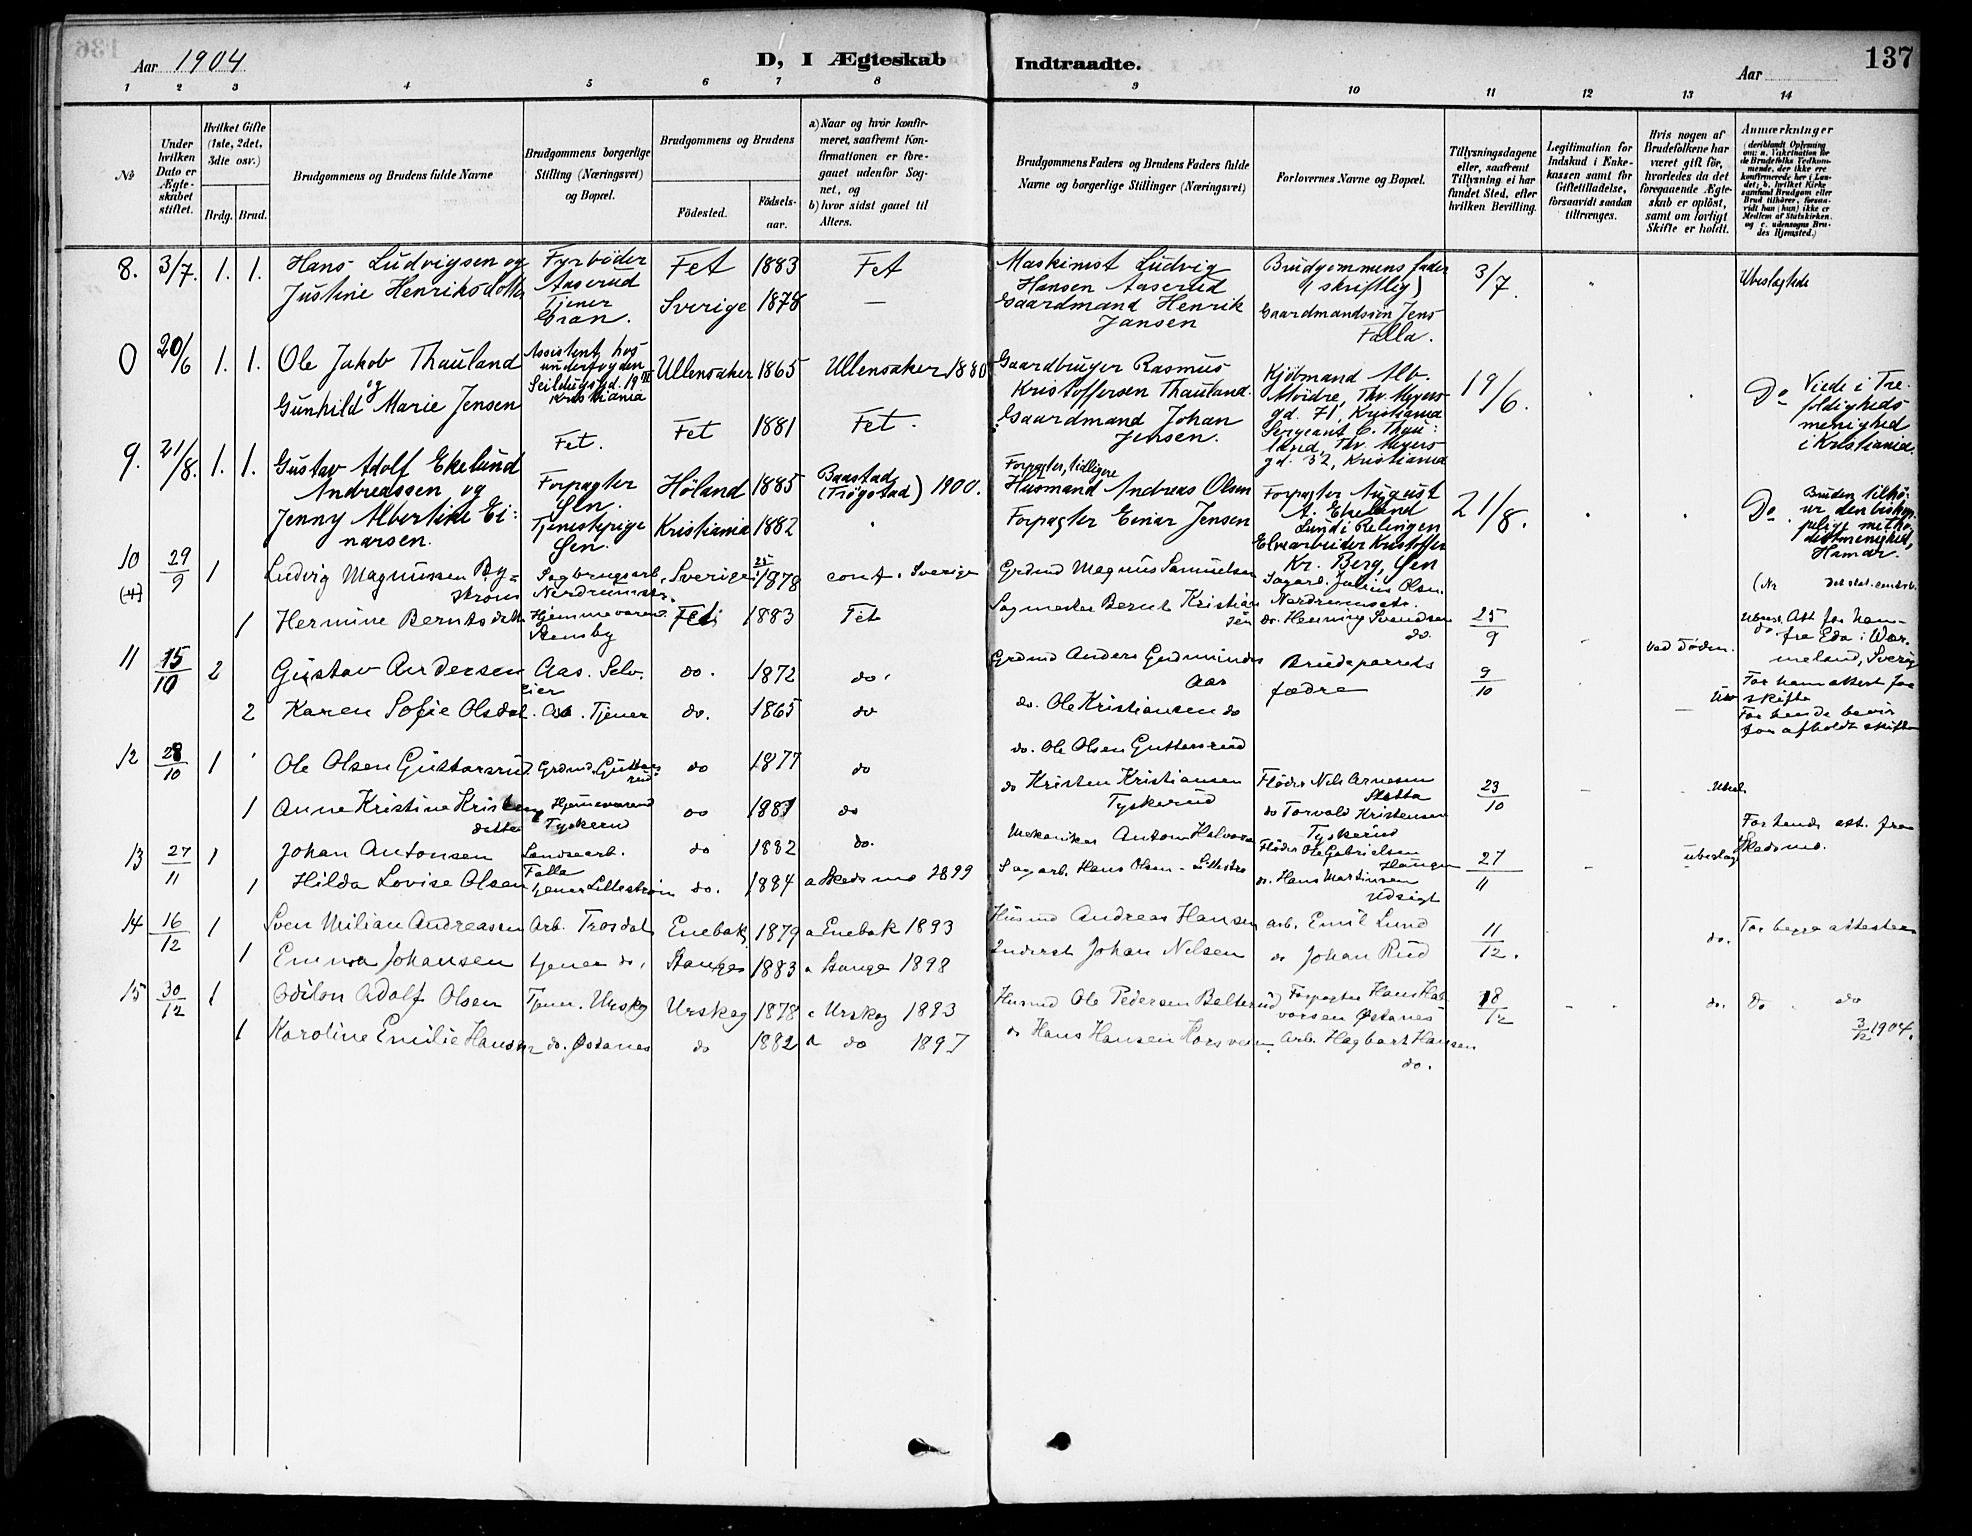 Aar 1904
D, I Ægteskab Indtraadte.
Aar
137
1 2 3 4 5 6 7 8 9 10 11 12 13 14
No
Under hvilken Dato er Ægteskabet stiftet.
Hvilket Gifte (1ste, 2det, 3die osv.)
Brdg. Brud.
Brudgommens og Brudens fulde Navne
Brudgommens borgerlige Stilling (Næringsvei) og Bopæl.
Brudgommens og Brudens
Födested.
Födselsaar.
a) Naar og hvor konfirmeret, saafremt Konfirmationen er foregaaet udenfor Sognet, og
b) hvor sidst gaaet til Alters.
Brudgommens Faders og Brudens Faders fulde Navne og borgerlige Stillinger (Næringsvei)
Forlovernes Navne og Bopæl.
Tillysningsdagene eller, saafremt Tillysning ei har fundet Sted, efter hvilken Bevilling.
Legitimation for Indskud i Enkekassen samt for Giftetilladelse, forsaavidt saadan tiltrænges.
Hvis nogen af Brudefolkene har været gift för, hvorledes da det foregaaende Ægteskab er oplöst, samt om lovligt Skifte er holdt.
Anmærkninger
8. 3/7. 1. 1. Hans Ludvigsen og Fyrböder Aaserud Fet 1883 Fet Maskinist Ludvig Hansen Aaserud Brudgommens fader (skriftlig) 3/7. Ubeslægtede
Justine Henriksdotter Tjener Gran. Sverige 1878 — Gaardmand Henrik Jansen Gaardmandssön Jens Falla.
0 20/6 1. 1. Ole Jakob Thauland og Assistent hos underfogden Seildugsgd. 19 Kristiania Ullensaker 1865 Ullensaker 1880 Gaardbruger Rasmus Kristoffersen Thauland. Kjöbmand Alb. Möidre, Thv. Meyers gd. 71, Kristiania 19/6. Do Viede i Trefoldigheds menighed i Kristiania.
Gunhild Marie Jensen Fet. Fet 1881 Fet. Gaardmand Johan Jensen. Sergeant C. Thauland, Thv. Meyers gd. 32, Kristiania
9. 21/8. 1. 1. Gustav Adolf Ekelund Andreassen og Forpagter Sen. Höland 1885 Baastad (Trögstad) 1900. Forpagter, tidligere Husmand Andreas Olsen Forpagter August A. Ekelund Lund i Relingen 21/8. Do Bruden tilhörer den biskoppelige methodistmenighed, Hamar.
Jenny Albertine Einarsen. Tjenestepige Sen. Kristiania 1882 Forpagter Einar Jensen Elvearbeider Kristoffer Kr. Berg, Sen
10 29/9 1 Ludvig Magnussen Byström Sagbrugsarb. Nordrumsst. Sverige 1878 conf. Sverige Grdmd Magnus Samuelsen Sagarb. Julius Olsen Nordrumsst.
1 Hermine Berntsdatt Hjemmevær. Stensby Fet 1883 Fet Sagmester Bernt Kristiansen do. Henning Svendsen do. 25/9 Att. for ham fra Eda i Wermeland, Sverig
11 15/10 2 Gustav Andersen Aas. Selveier do. 1872 do. Grdmd Anders Gudmundes Aas Brudeparrets fædre 9/10 Ved Döden. For ham attest for skifte
2 Karen Sofie Olsdat. Aas. Tjener do. 1865 do do. Ole Kristiansen do For hende bevis for afholdt skifte
12 28/10 1 Ole Olsen Guttersrud. Grdmd. Guttersrud do 1877 do do. Ole Olsen Guttersrud Fløder Nils Arnesen 23/10
1 Anne Kristine Kristensdatter Hjemmeværend Tyskerud do 1881 do do Kristen Kristiansen Tyskerud do Torvald Kristensen Tyskerud
13 27/11 1 Johan Antonsen Landsearb. Falla do 1882 do. Mekaniker Anton Halvorsen Fløder Ole Gabrielsen Haugen 27/11 ubeslag For hende att. fra Skedsmo.
1 Hilda Lovise Olsen tjener Lillestrøm do. 1884 a Skedsmo 1899 Sagarb. Hans Olsen - Lillestrø do. Hans Martinsen Udsigt
14 16/12 1 Sven Milian Andreassen Arb. Trosdal Enebak 1879 a Enebak 1893 Husmd Andreas Hansen arb. Emil Lund 11/12. do. For begge attester
1 Emma Johansen tjener do. Stange 1883 a Stange 1898 Inderst Johan Nelsen do Johan Rud
15 30/12 1 Odilon Adolf Olsen Tjener. Urskog Urskog 1878 a Urskog 1893 Husmd Ole Pedersen Belterud Forpagter Hans Halvorsen Østanes 18/12 do. Do do 3/12 1904.
1 Karoline Emilie Hansen do. Østanes do 1882 a do 1897 do Hans Hansen Korsveien Arb. Hagbart Hansen do.